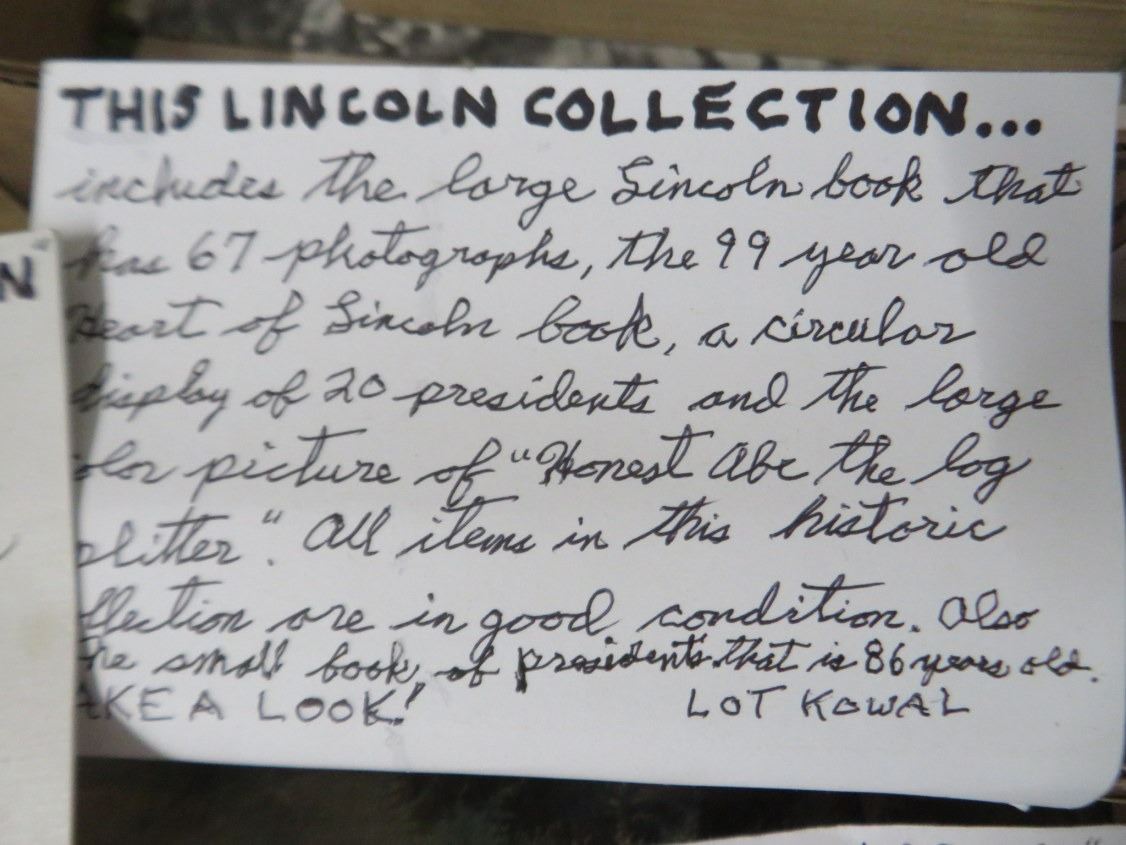 THIS LINCOLN COLLECTION...
includes the large Lincoln book that
has 67 photographs, the 99 year old
Heart of Lincoln book, a circular
display of 20 presidents and the large
olor picture of "Honest Abe the log
plitter". All items in this historic
llection are in good condition. Also
he small book, of president's that is 86 years old.
AKE A LOOK! LOT KOWAL
N